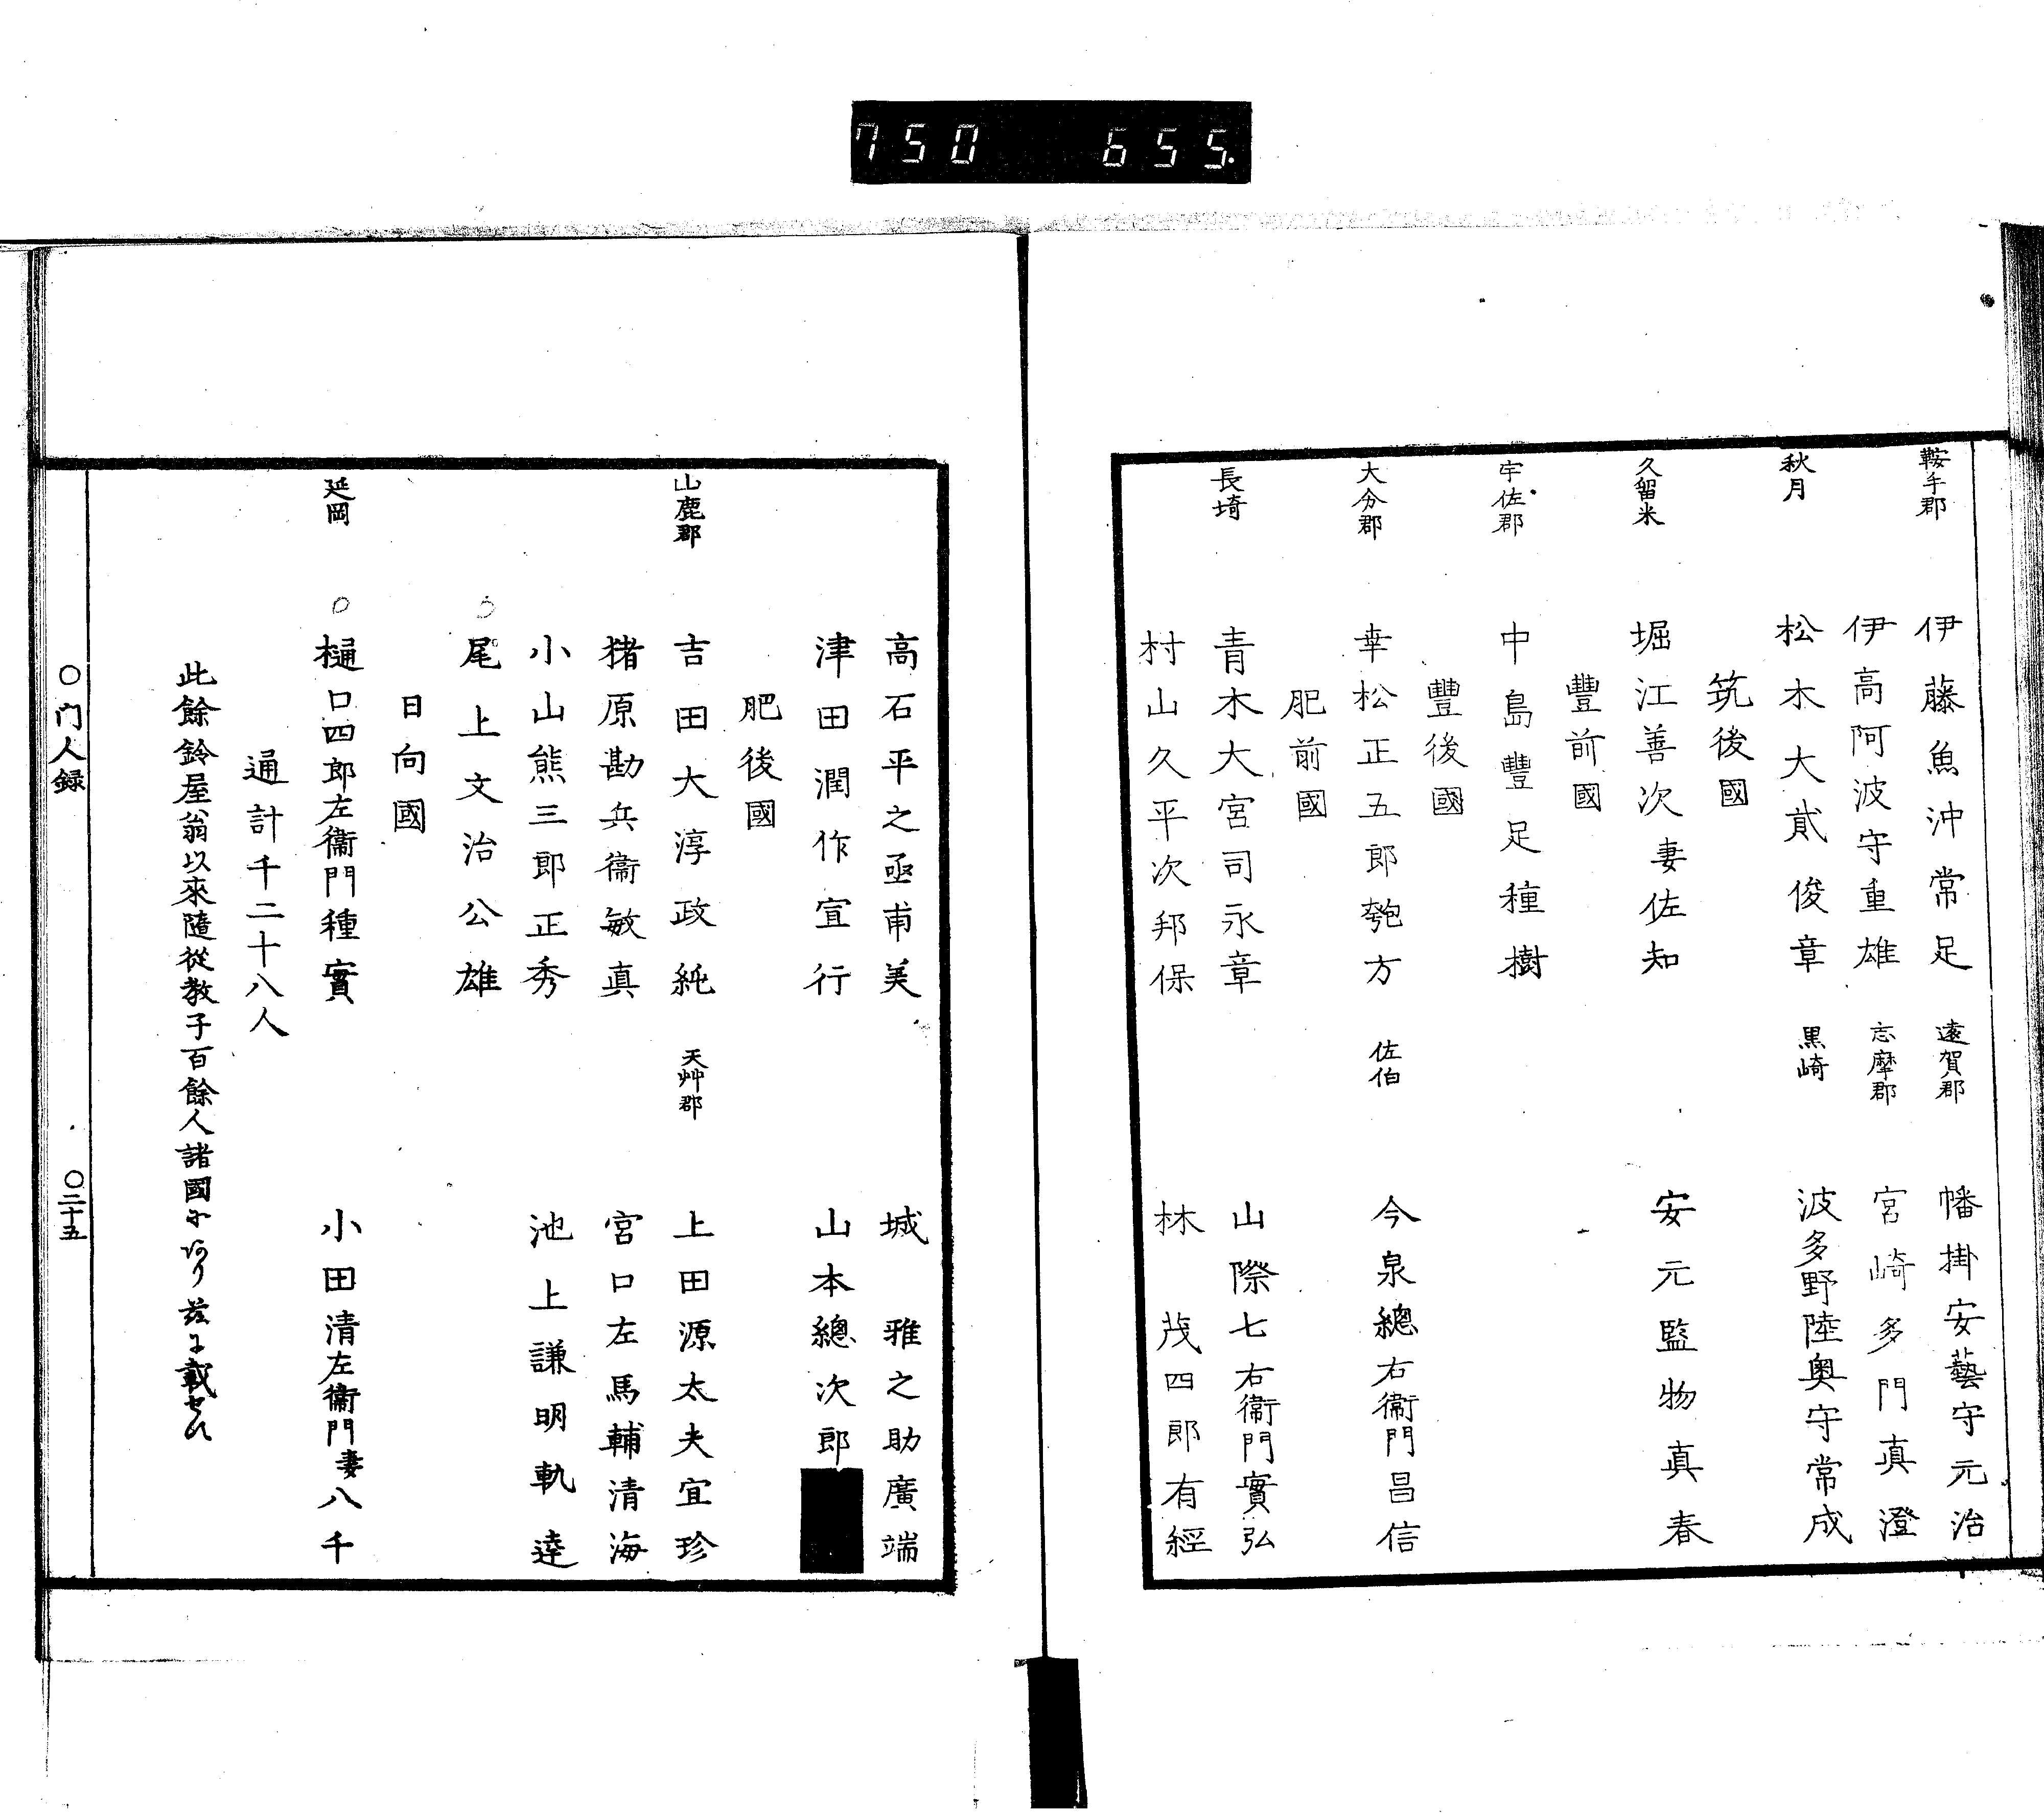 750 655.
鞍手郡 伊藤魚沖常足 遠賀郡 幡掛安藝守元治
伊高阿波守重雄 志摩郡 宮崎多門真澄
秋月 松木大貳俊章 黒崎 波多野陸奥守常成
筑後國
久留米 堀江善次妻佐知 安元監物真春
豐前國
宇佐郡 中島豐足種樹
豐後國
大分郡 幸松正五郎匏方 佐伯 今泉總右衞門昌信
肥前國
長埼 青木大宮司永章 山際七右衞門實弘
村山久平次邦保 林茂四郎有經
高石平之亟甫美 城雅之助廣端
津田潤作宣行 山本總次郎
肥後國
山鹿郡 吉田大淳政純 天艸郡 上田源太夫宜珍
猪原勘兵衞敏真 宮口左馬輔清海
小山熊三郎正秀 池上謙明軌達
○尾上文治公雄
日向國
延岡 ○樋口四郎左衞門種實 小田清左衞門妻八千
通計千二十八人
此餘鈴屋翁以來隨從教子百餘人諸國に阿り茲に載せ
○门人録 ○二十五